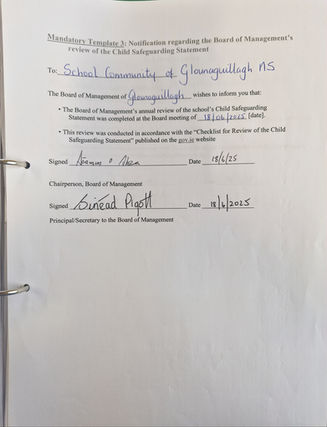 Mandatory Template 3: Notification regarding the Board of Management's
review of the Child Safeguarding Statement
To: School Community of Glounaguillagh NS
The Board of Management of Glounaguillagh wishes to inform you that:
• The Board of Management's annual review of the school's Child Safeguarding
Statement was completed at the Board meeting of 18/06/2025 [date].
• This review was conducted in accordance with the "Checklist for Review of the Child
Safeguarding Statement" published on the gov.ie website
Signed Date 18/6/25
Chairperson, Board of Management
Signed Sinéad Pigott Date 18/6/2025
Principal/Secretary to the Board of Management